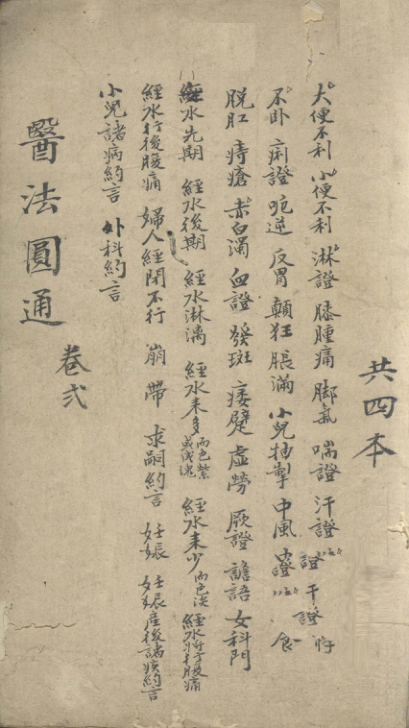 共四本
大便不利 小便不利 淋證 膝腫痛 腳氣 喘證 汗證
不卧 痢證 呃逆 反胃 顛狂 脹滿 小兒抽掣 中風 食
脱肛 痔瘡 赤白濁 血證 發斑 痿躄 虛勞 厥證 譫語 女科門
經水先期 經水後期 經水淋漓 經水來多而色紫或成塊 經水來少而色淡 經水將行腹痛
經水行後腹痛 婦人經閉不行 崩 帶 求嗣約言 妊娠 妊娠產後諸疾約言
小兒諸病約言 外科約言
卷弍
醫法圓通